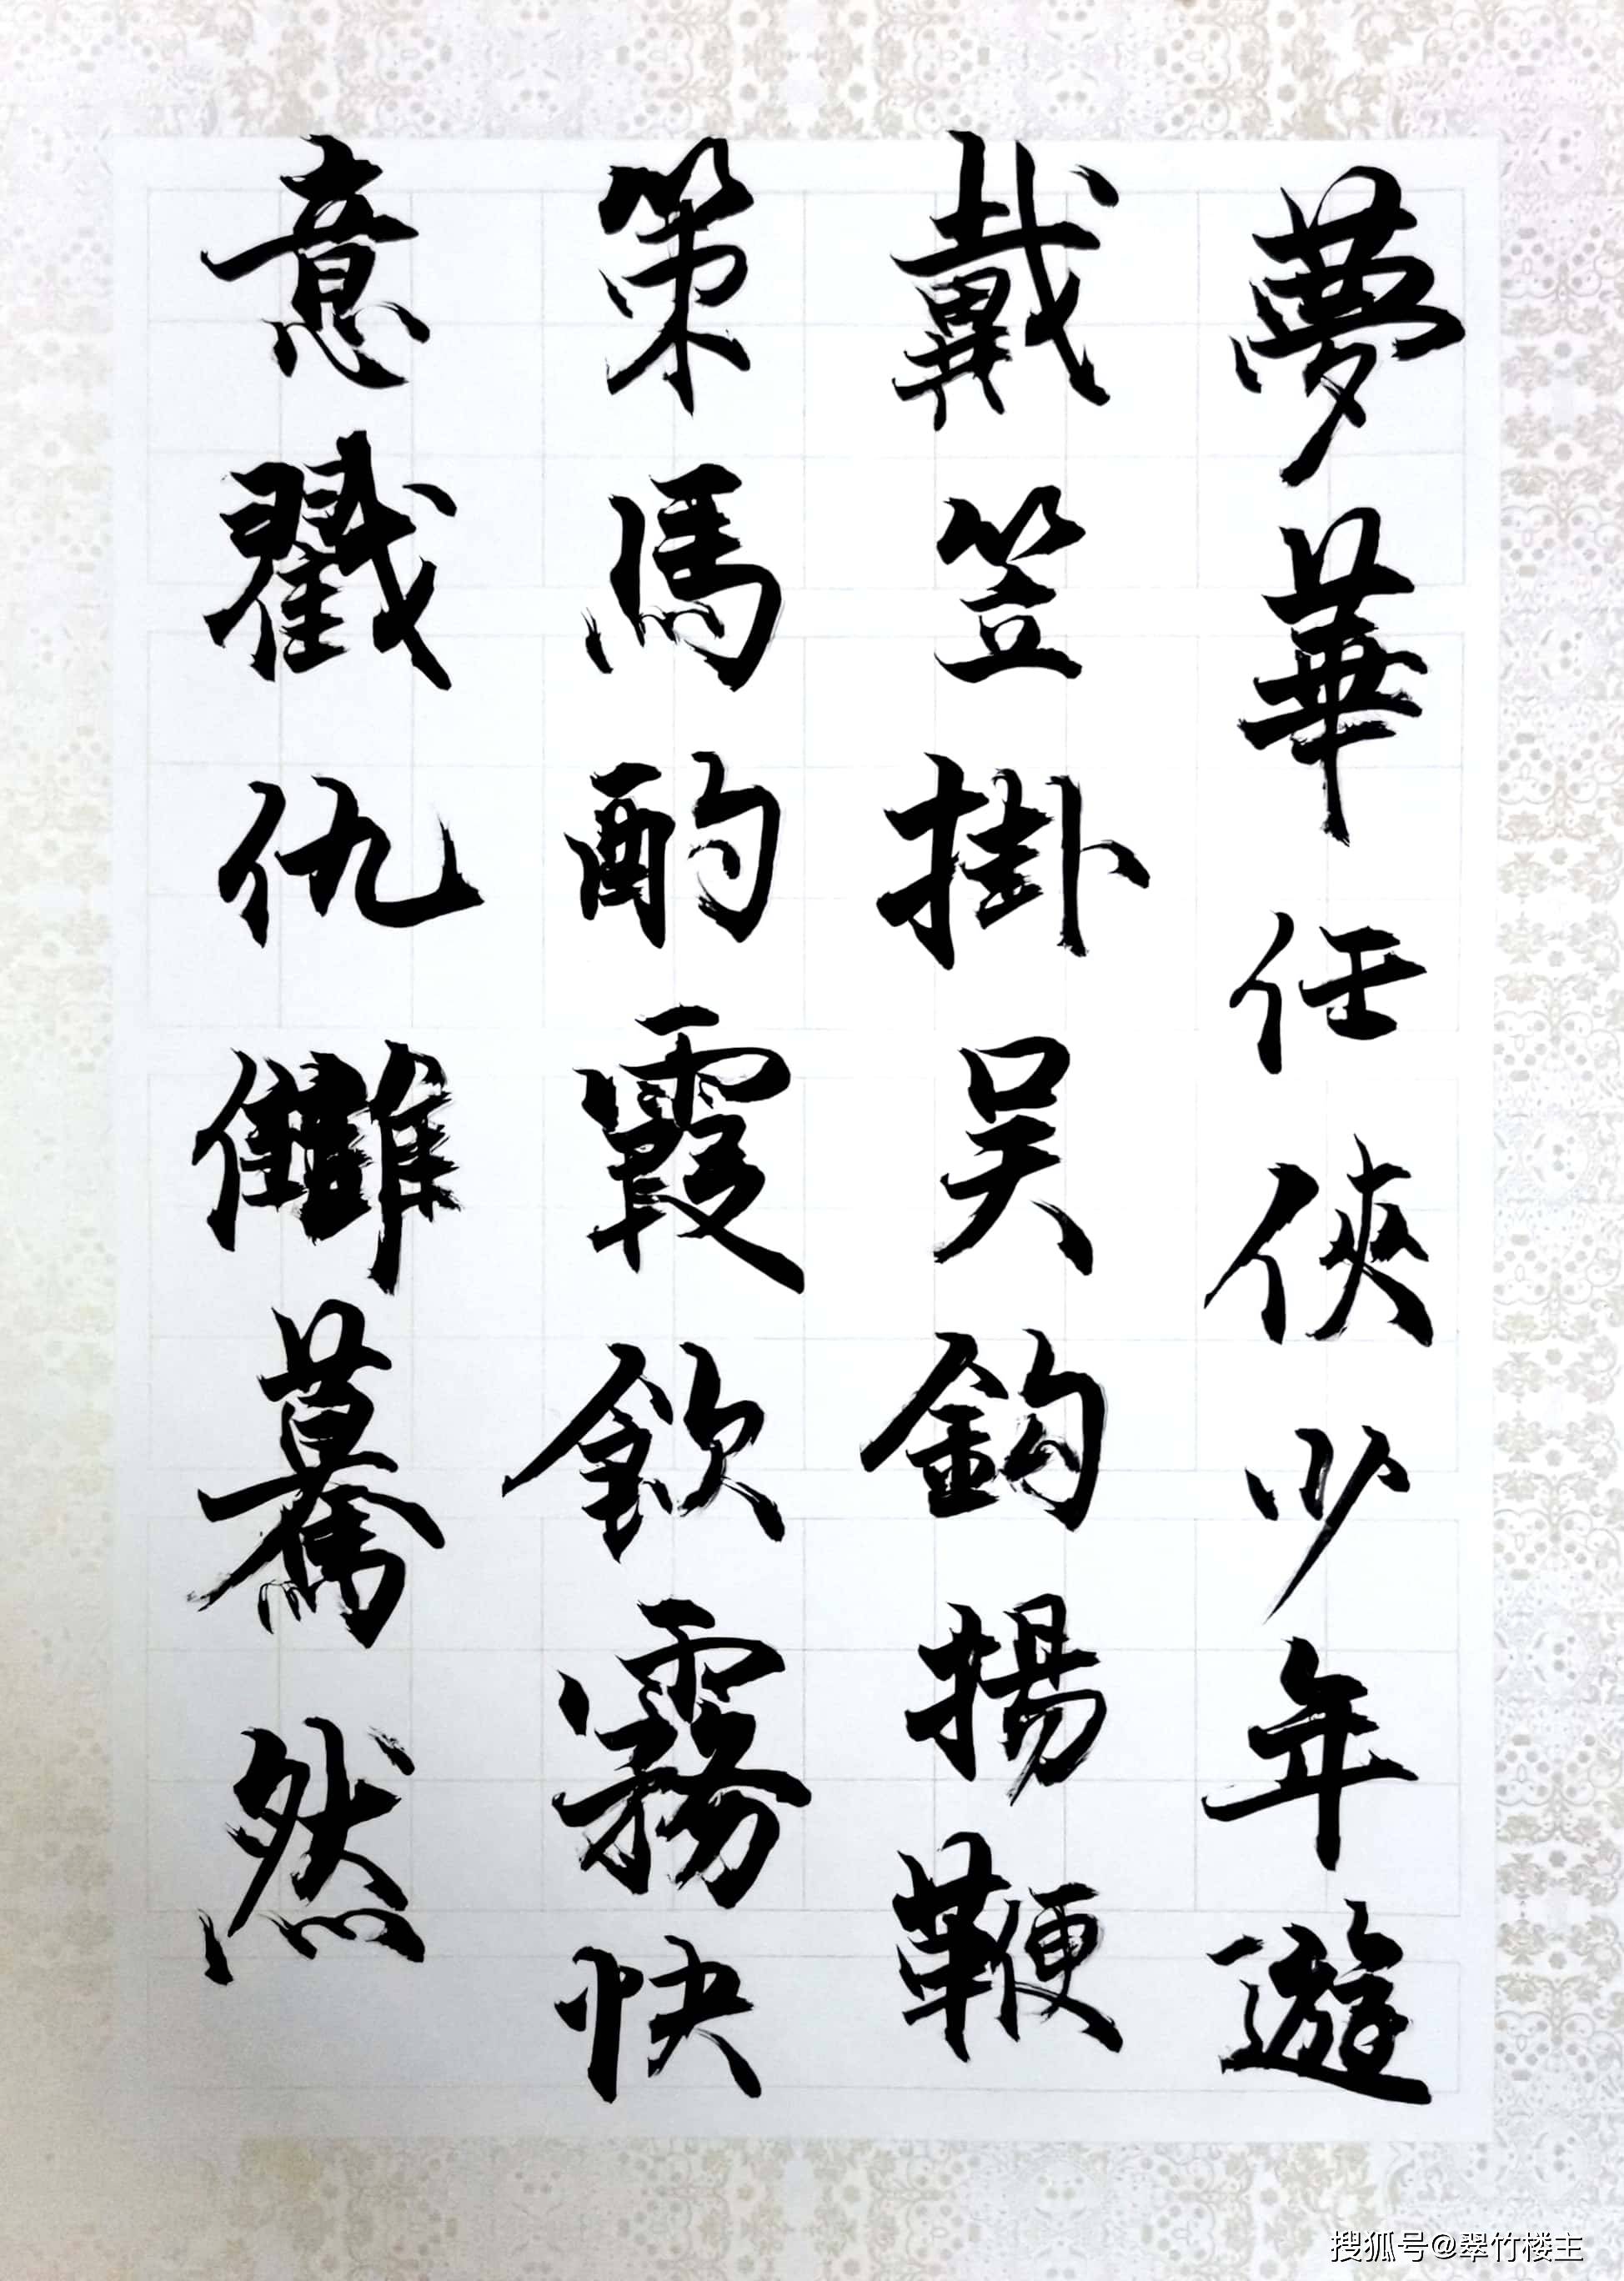 夢華任俠少年遊
戴笠掛吴鈎揚鞭
策馬酌霞飲霧快
意戳仇讎驀然
搜狐号@翠竹楼主